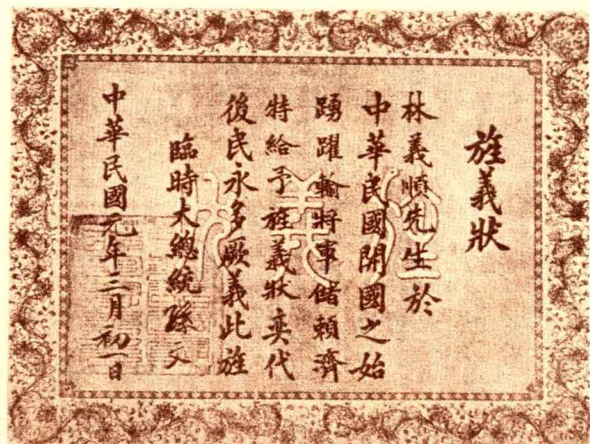 旌義狀
林義順先生於
中華民國開國之始
踴躍輸將軍儲賴濟
特給予旌義狀奕代
後民永多厥義此旌
臨時大總統孫文
中華民國元年三月初一日
旌義狀